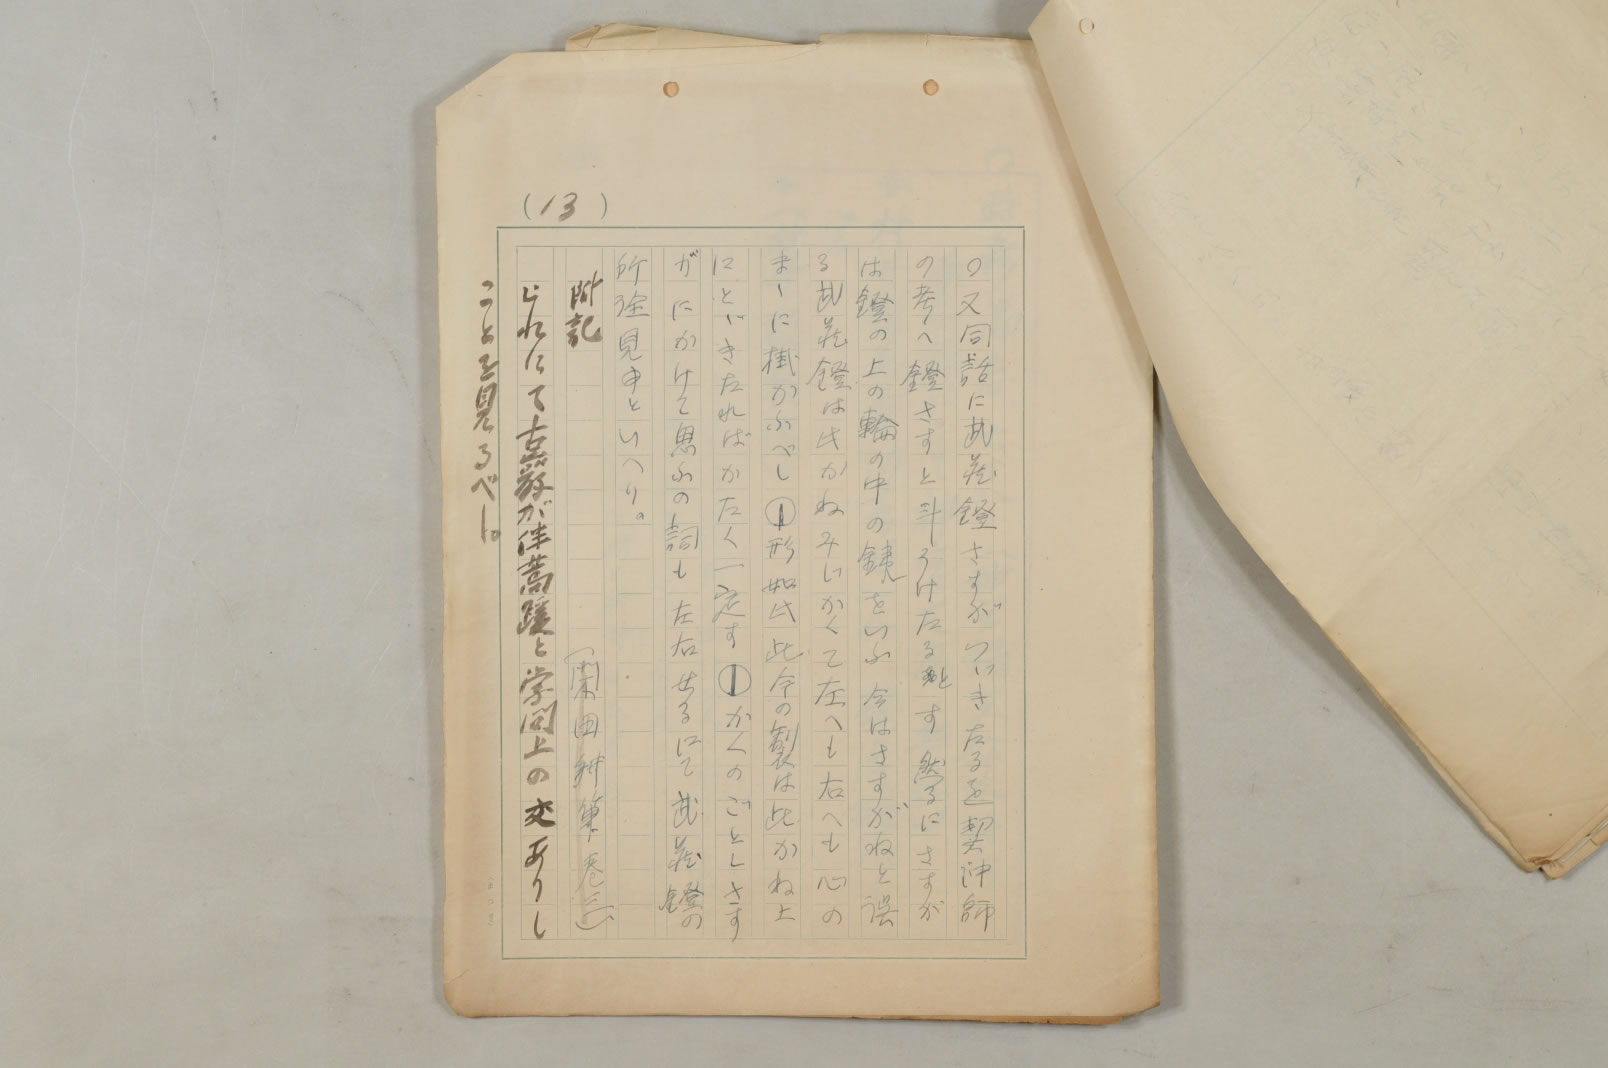 (13)
〇又同話に武蔵鐙さすがつゞきたるを契沖師
の考へ鐙さすと斗うけたると す然るにさすが
は鐙の上の輪の中の鐉をいふ今はさすがねと誤
る武蔵鐙は此かねみじかくて左へも右へも心の
まゝに掛かふべし①形如此此今の製は此かね上
にとゞきたればかたく一定す①かくのごとしさす
がにかけて思ふの詞も左右せるにて武蔵鐙の
所詮見ゆといへり。
(閑田耕筆巻三)
附記
これにて古巌が伴蒿蹊と学問上の交ありし
ことを見るべし。